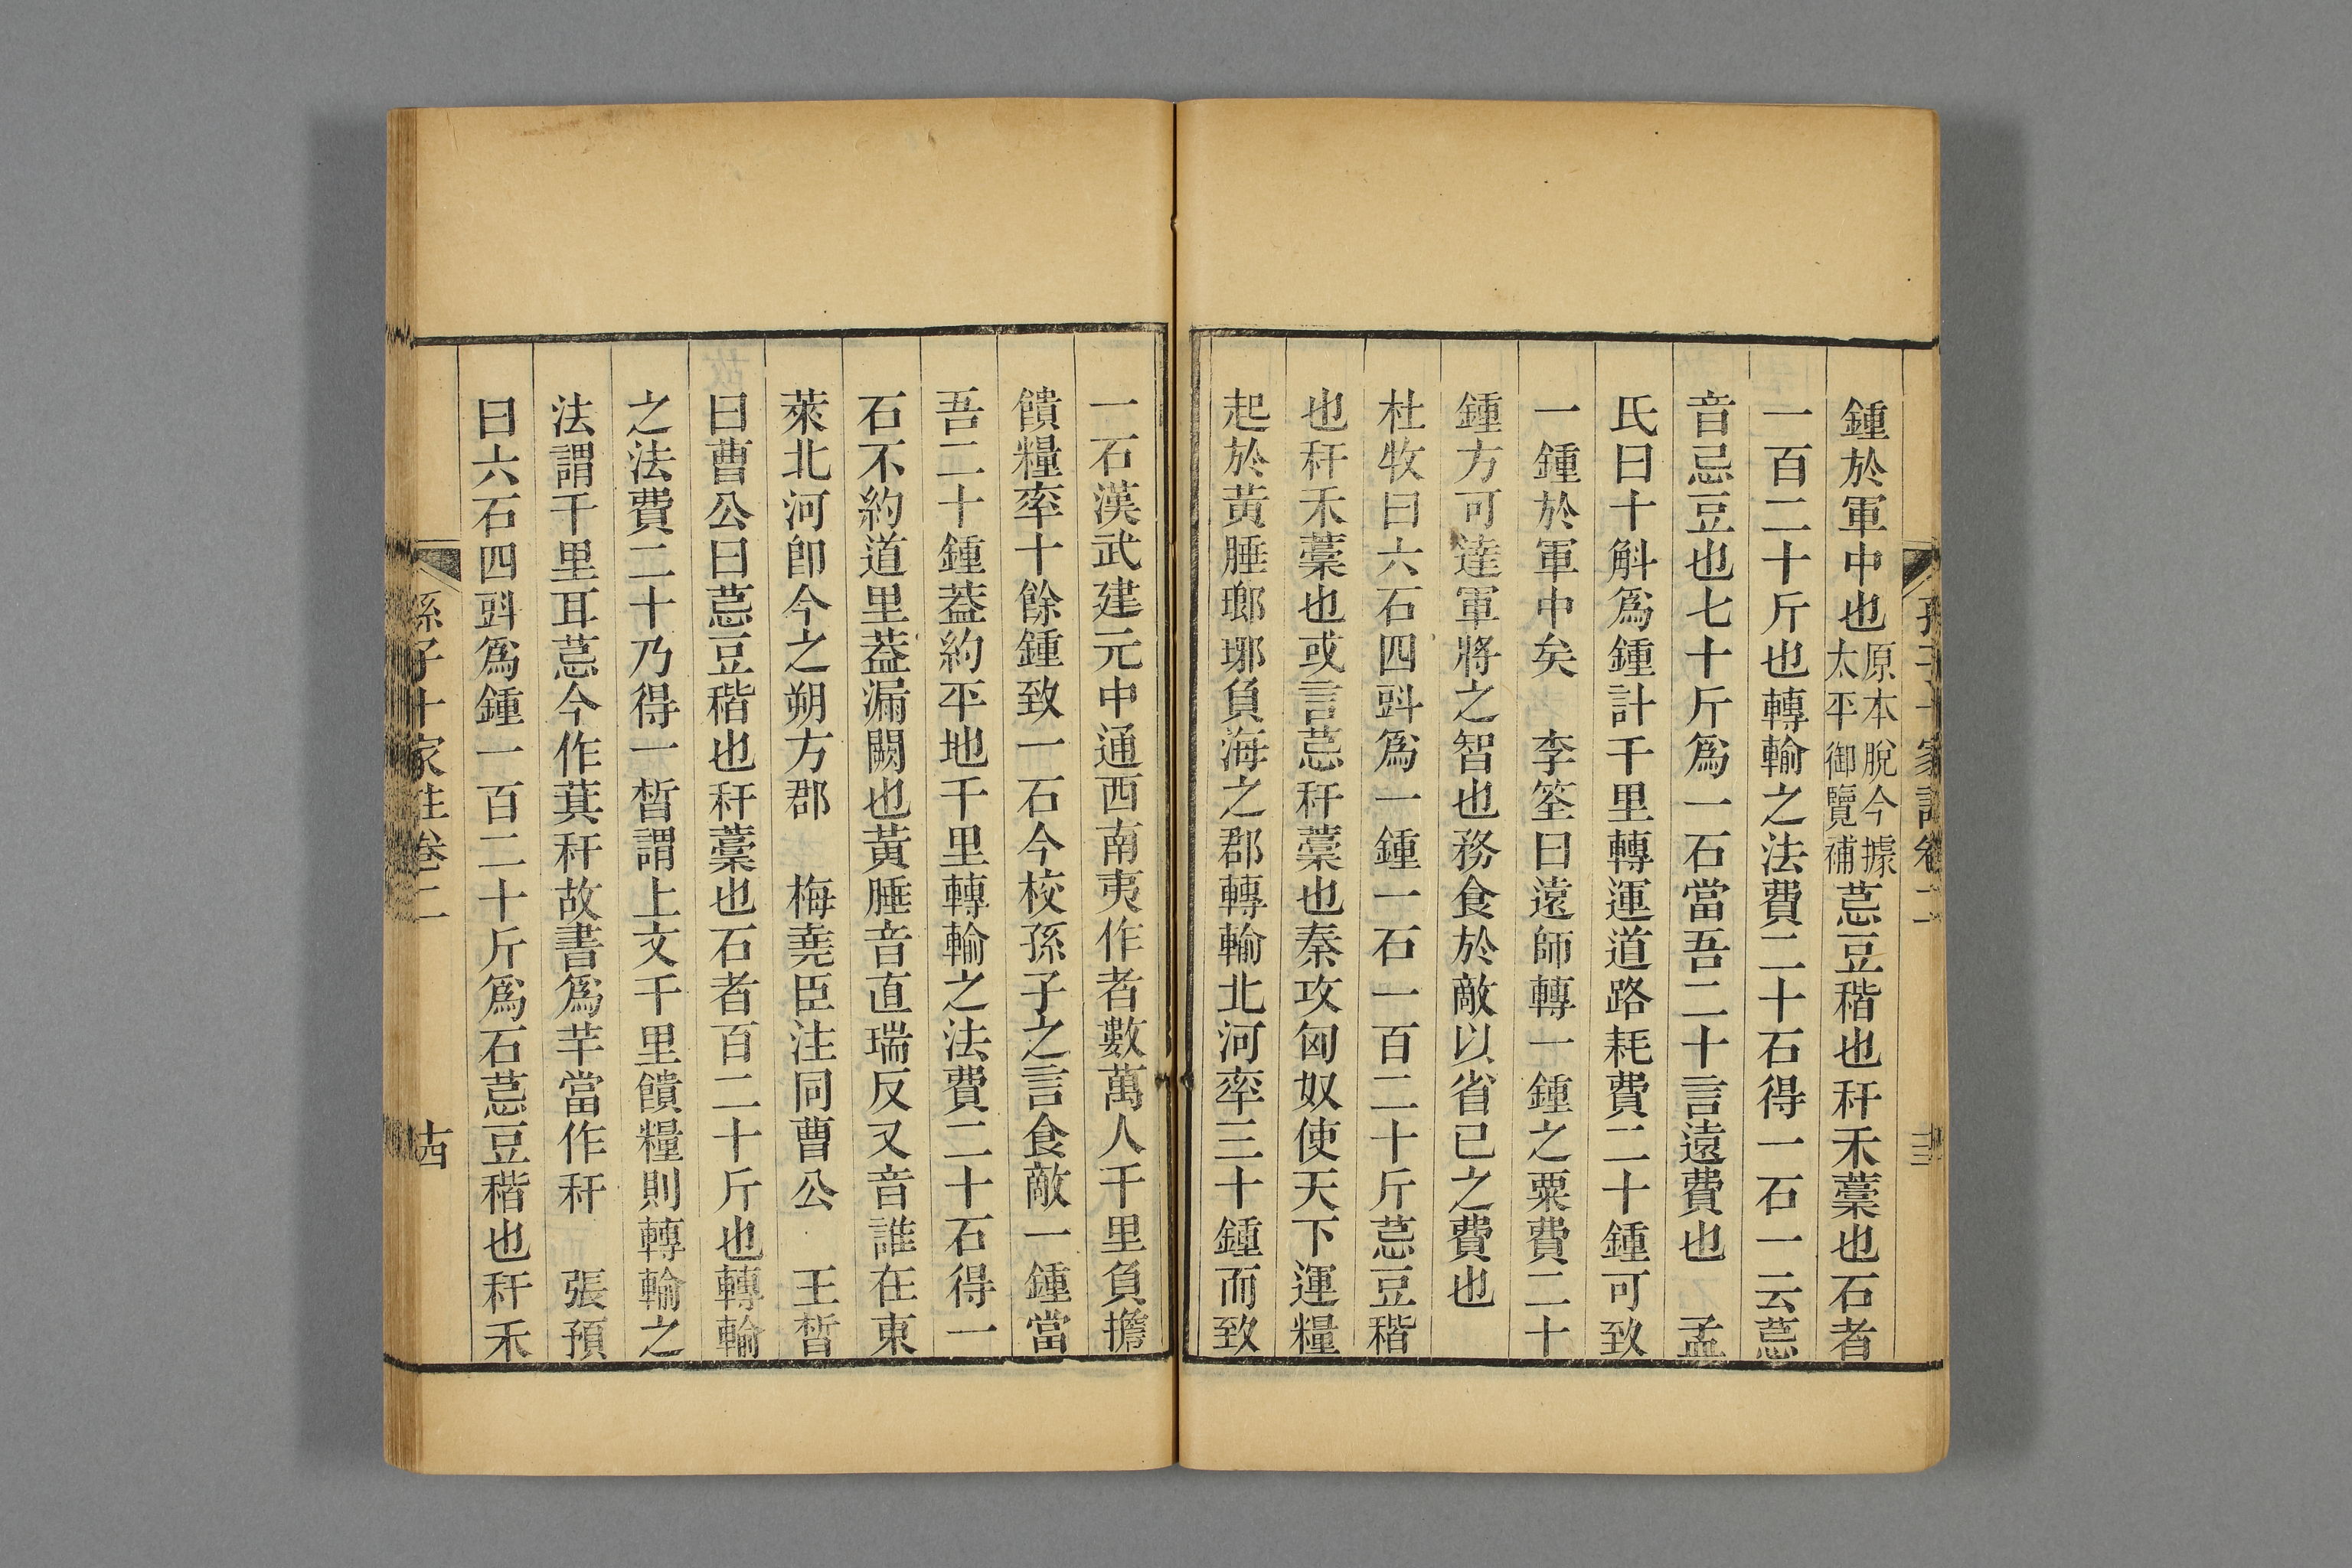 孫子十家註卷二
十三
鍾於軍中也原本脫今據太平御覽補䓈豆稭也秆禾藁也石者
一百二十斤也轉輸之法費二十石得一石一云䓈
音忌豆也七十斤爲一石當吾二十言遠費也　孟
氏曰十斛爲鍾計千里轉運道路耗費二十鍾可致
一鍾於軍中矣　李筌曰遠師轉一鍾之粟費二十
鍾方可達軍將之智也務食於敵以省已之費也
杜牧曰六石四㪷爲一鍾一石一百二十斤䓈豆稭
也秆禾藁也或言䓈秆藁也秦攻匈奴使天下運糧
起於黃腄瑯琊負海之郡轉輸北河率三十鍾而致
一石漢武建元中通西南夷作者數萬人千里負擔
饋糧率十餘鍾致一石今校孫子之言食敵一鍾當
吾二十鍾葢約平地千里轉輸之法費二十石得一
石不約道里葢漏闕也黃腄音直瑞反又音誰在東
萊北河卽今之朔方郡　梅堯臣注同曹公　王晳
曰曹公曰䓈豆稭也秆藁也石者百二十斤也轉輸
之法費二十乃得一晳謂上文千里饋糧則轉輸之
法謂千里耳䓈今作萁秆故書爲芉當作秆　張預
曰六石四㪷爲鍾一百二十斤爲石䓈豆稭也秆禾
孫子十家註卷二
十四